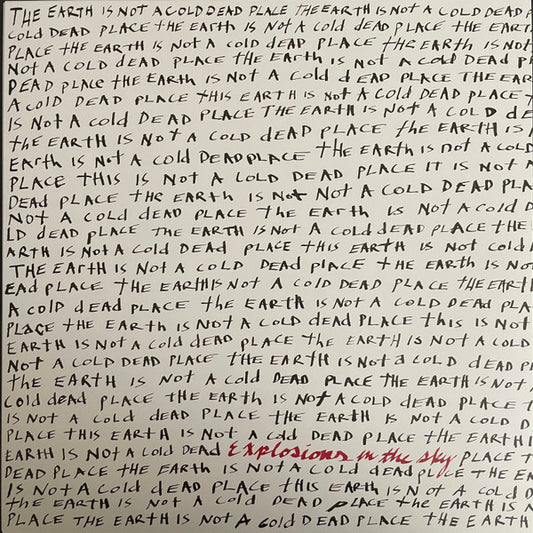 THE EARTH IS NOT A COLD DEAD PLACE THE EARTH IS NOT A COLD DEAD P
COLD DEAD PLACE THE EARTH IS NOT A COLD DEAD PLACE THE EART
PLACE THE EARTH IS NOT A COLD DEAD PLACE THE EARTH IS NOT
NOT A COLD DEAD PLACE THE EARTH IS NOT A COLD DEAD PL
DEAD PLACE THE EARTH IS NOT A COLD DEAD PLACE THE EAR
A COLD DEAD PLACE THIS EARTH IS NOT A COLD DEAD PLACE T
IS NOT A COLD DEAD PLACE THE EARTH IS NOT A COLD DE
THE EARTH IS NOT A COLD DEAD PLACE THE EARTH IS
EARTH IS NOT A COLD DEAD PLACE THE EARTH IS NOT A COLD
PLACE THIS IS NOT A COLD DEAD PLACE IT IS NOT A
DEAD PLACE THE EARTH IS NOT NOT A COLD DEAD PLA
NOT A COLD DEAD PLACE THE EARTH IS NOT A COLD D
LD DEAD PLACE THE EARTH IS NOT A COLD DEAD PLACE THE
ARTH IS NOT A COLD DEAD PLACE THIS EARTH IS NOT COLD
THE EARTH IS NOT A COLD DEAD PLACE THE EARTH IS NO
EAD PLACE THE EARTH IS NOT A COLD DEAD PLACE THE EARTH
A COLD DEAD PLACE THE EARTH IS NOT A COLD DEAD PLA
PLACE THE EARTH IS NOT A COLD DEAD PLACE THIS IS NOT
EARTH IS NOT A COLD DEAD PLACE THE EARTH IS NOT A COLD
NOT A COLD DEAD PLACE THE EARTH IS NOT A COLD DEAD PL
THE EARTH IS NOT A COLD DEAD PLACE THE EARTH IS NOT
COLD DEAD PLACE THE EARTH IS NOT A COLD DEAD PLACE T
IS NOT A COLD DEAD PLACE THE EARTH IS NOT A COLD D
PLACE THIS EARTH IS NOT A COLD DEAD PLACE THE EARTH I
EARTH IS NOT A COLD DEAD Explosions in the sky PLACE T
DEAD PLACE THE EARTH IS NOT A COLD DEAD PLACE THE EA
IS NOT A COLD DEAD PLACE THIS EARTH IS NOT A COLD D
THE EARTH IS NOT A COLD DEAD PLACE THE EARTH IS NO
PLACE THE EARTH IS NOT A COLD DEAD PLACE THE EARTH